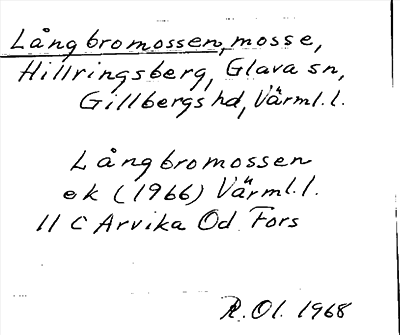 Långbromossen, mosse,
Hillringsberg, Glava sn,
Gillbergs hd, Värml.l.
Långbromossen
ek (1966) Värml.l.
11 C Arvika Od Fors
R.Ol. 1968